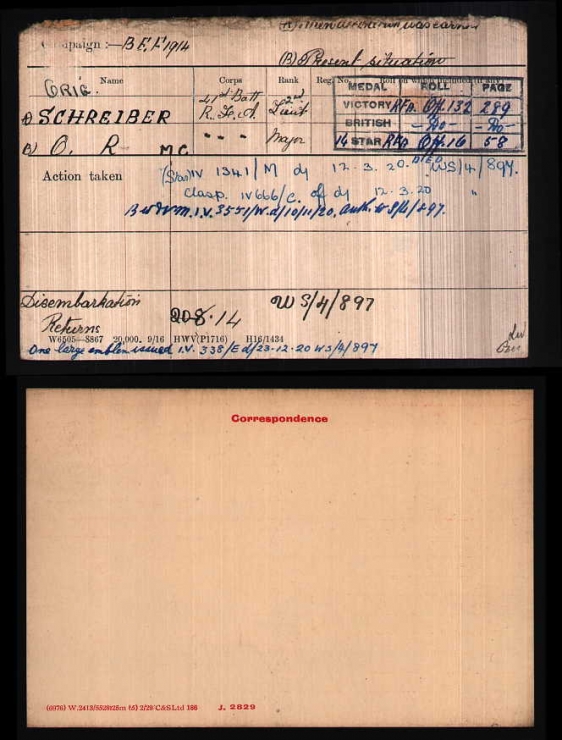 (A) When decoration was earned
Campaign :—B.E.F. 1914
(B) Present situation
Name Corps Rank Reg. No. Roll on which included (if any).
ORIG. 41st Batt 2nd MEDAL ROLL PAGE
A) SCHREIBER R.F.A. Lieut VICTORY RFA. Off. 132 289
BRITISH —Do— —Do—
B) O. R. MC " " " Major 14 STAR RFA Off. 16 58
Action taken (Star) IV 1341/M d/ 12.3.20. WS/4/897.
Clasp. IV 666/C. off d/ 12.3.20 "
B.W & V.M. I.V. 3551/W. d/10/11/20. auth. WS/4/897.
Disembarkation Returns 8.14 WS/4/897
W6505—8867 20,000. 9/16 HWV(P1716) H16/1434
One large emblem issued I.V. 338/E d/23-12-20 WS/4/897
Correspondence
(6976) W.2413/ 2/20 C&SLtd 166 J. 2829